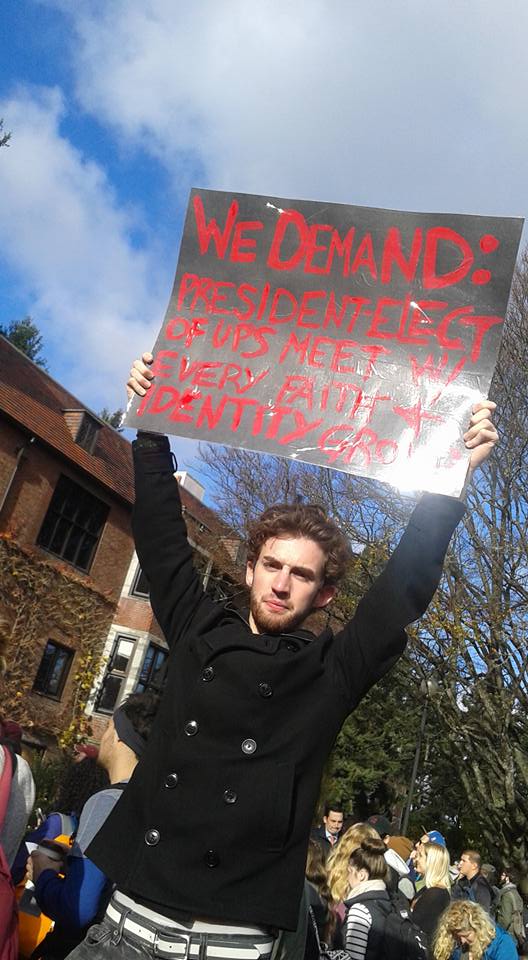 WE DEMAND:
PRESIDENT-ELECT
OF UPS MEET W/
EVERY FAITH +
IDENTITY